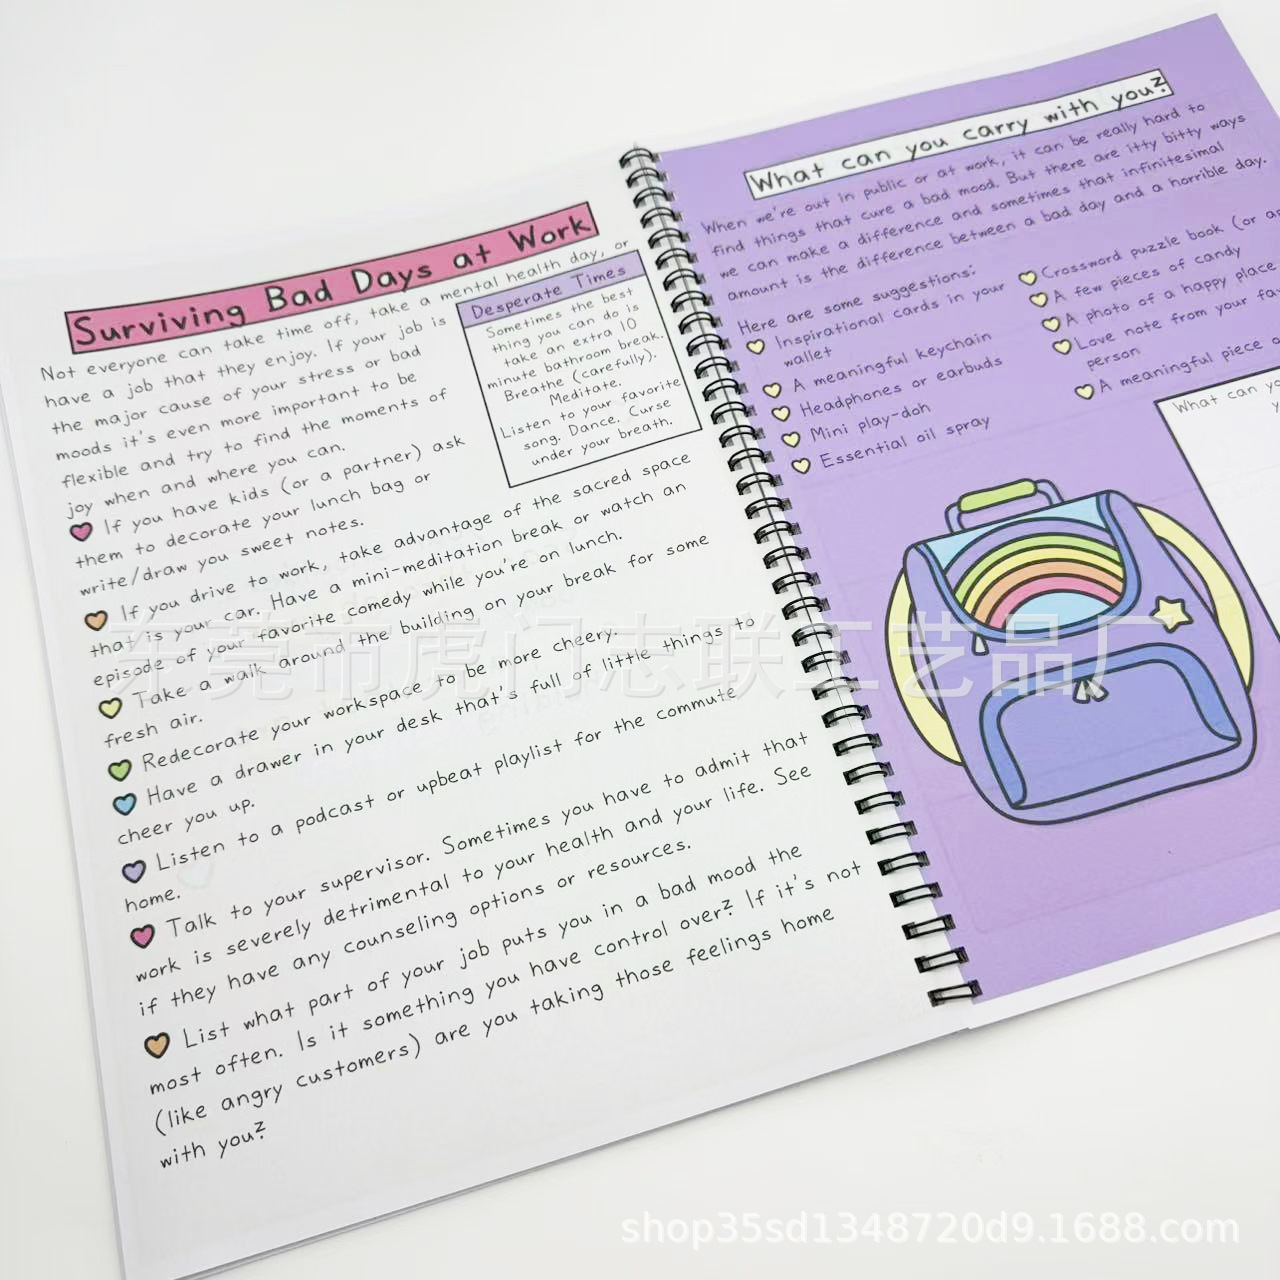 Surviving Bad Days at Work
Not everyone can take time off, take a mental health day, or
have a job that they enjoy. If your job is
the major cause of your stress or bad
moods it's even more important to be
flexible and try to find the moments of
joy when and where you can.
If you have kids (or a partner) ask
them to decorate your lunch bag or
write/draw you sweet notes.
Desperate Times
Sometimes the best
thing you can do is
take an extra 10
minute bathroom break.
Breathe (carefully).
Meditate.
Listen to your favorite
song. Dance. Curse
under your breath.
If you drive to work, take advantage of the sacred space
that is your car. Have a mini-meditation break or watch an
episode of your favorite comedy while you're on lunch.
Take a walk around the building on your break for some
fresh air.
Redecorate your workspace to be more cheery.
Have a drawer in your desk that's full of little things to
cheer you up.
Listen to a podcast or upbeat playlist for the commute
home.
Talk to your supervisor. Sometimes you have to admit that
work is severely detrimental to your health and your life. See
if they have any counseling options or resources.
List what part of your job puts you in a bad mood the
most often. Is it something you have control over? If it's not
(like angry customers) are you taking those feelings home
with you?
What can you carry with you?
When we're out in public or at work, it can be really hard to
find things that cure a bad mood. But there are itty bitty ways
we can make a difference and sometimes that infinitesimal
amount is the difference between a bad day and a horrible day.
Here are some suggestions:
Inspirational cards in your
wallet
A meaningful keychain
Headphones or earbuds
Mini play-doh
Essential oil spray
Crossword puzzle book (or
A few pieces of candy
A photo of a happy place
Love note from your
person
A meaningful piece
What can
东莞市虎门志联工艺品厂
shop35sd1348720d9.1688.com